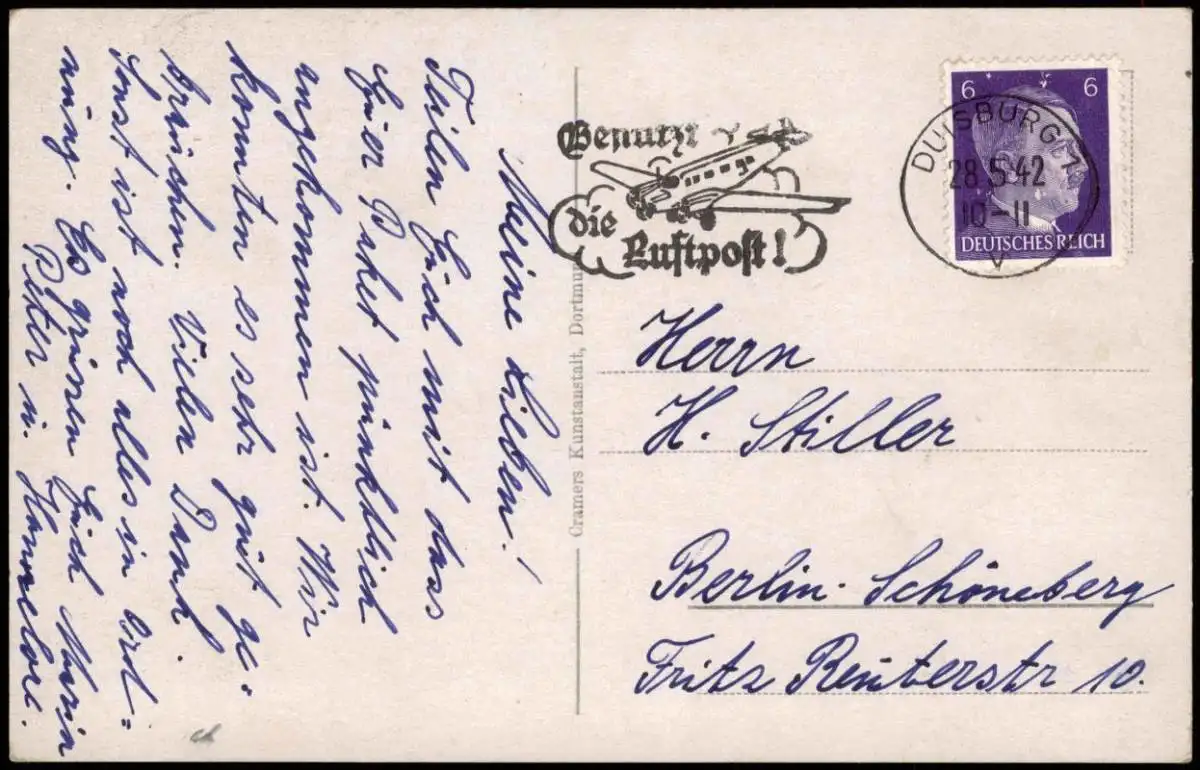 Meine Lieben!
Teilen Euch mit das
hier Paket pünktlich
angekommen ist. Wir
konnten es sehr gut ge-
brauchen. Vielen Dank.
Sonst ist noch alles in Ord=
nung. Es grüssen Euch Maria
Peter u. Hannelore.
Cramers Kunstanstalt, Dortmun
Benutzt
die
Luftpost!
6 6
DUISBURG 1
28.5.42
10-11
V
DEUTSCHES REICH
Herrn
H. Stiller
Berlin-Schöneberg
Fritz Reuterstr 10.